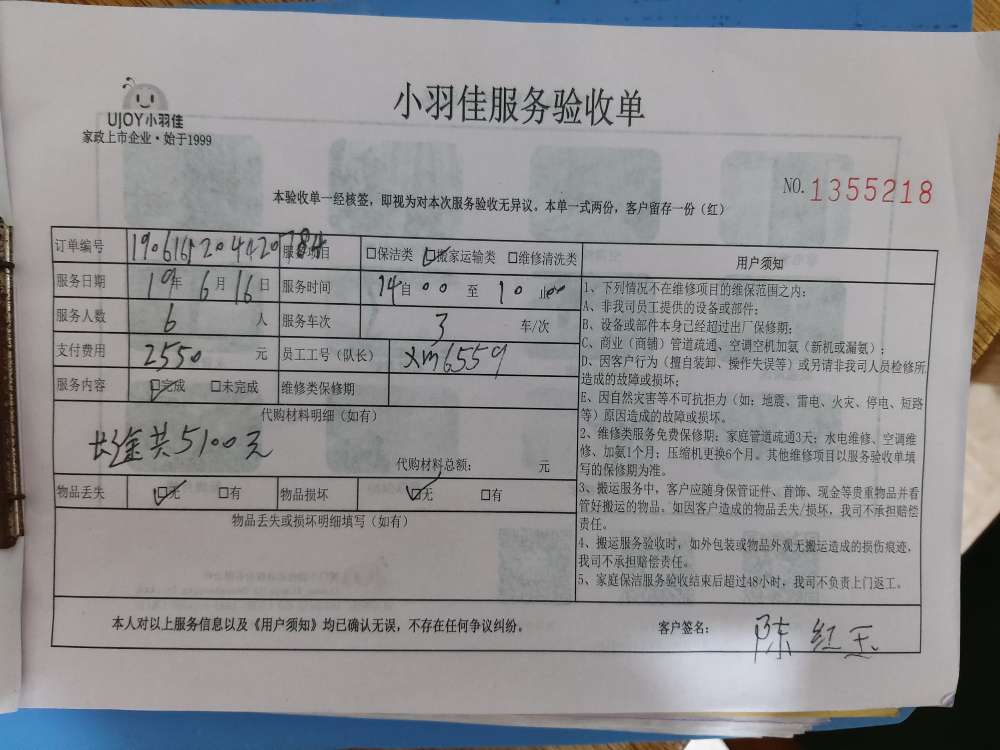 小羽佳服务验收单
UJOY小羽佳
家政上市企业·始于1999
NO.1355218
本验收单一经核签，即视为对本次服务验收无异议。本单一式两份，客户留存一份（红）
订单编号 190616204420784 服务项目 □保洁类 ☑搬家运输类 □维修清洗类
服务日期 19年 6月 16日 服务时间 14自00 至 10 止
服务人数 6 人 服务车次 3 车/次
支付费用 2550 元 员工工号（队长） xm6559
服务内容 ☑完成 □未完成 维修类保修期
代购材料明细（如有）
长途共5100元
代购材料总额： 元
物品丢失 ☑无 □有 物品损坏 ☑无 □有
物品丢失或损坏明细填写（如有）
用户须知
1、下列情况不在维修项目的维保范围之内：
A、非我司员工提供的设备或部件；
B、设备或部件本身已经超过出厂保修期；
C、商业（商铺）管道疏通、空调空机加氨（新机或漏氨）；
D、因客户行为（擅自装卸、操作失误等）或另请非我司人员检修所
造成的故障或损坏；
E、因自然灾害等不可抗拒力（如：地震、雷电、火灾、停电、短路
等）原因造成的故障或损坏。
2、维修类服务免费保修期：家庭管道疏通3天；水电维修、空调维
修、加氨1个月；压缩机更换6个月。其他维修项目以服务验收单填
写的保修期为准。
3、搬运服务中，客户应随身保管证件、首饰、现金等贵重物品并看
管好搬运的物品。如因客户造成的物品丢失/损坏，我司不承担赔偿
责任。
4、搬运服务验收时，如外包装或物品外观无搬运造成的损伤痕迹，
我司不承担赔偿责任。
5、家庭保洁服务验收结束后超过48小时，我司不负责上门返工。
本人对以上服务信息以及《用户须知》均已确认无误，不存在任何争议纠纷。 客户签名： 陈红玉